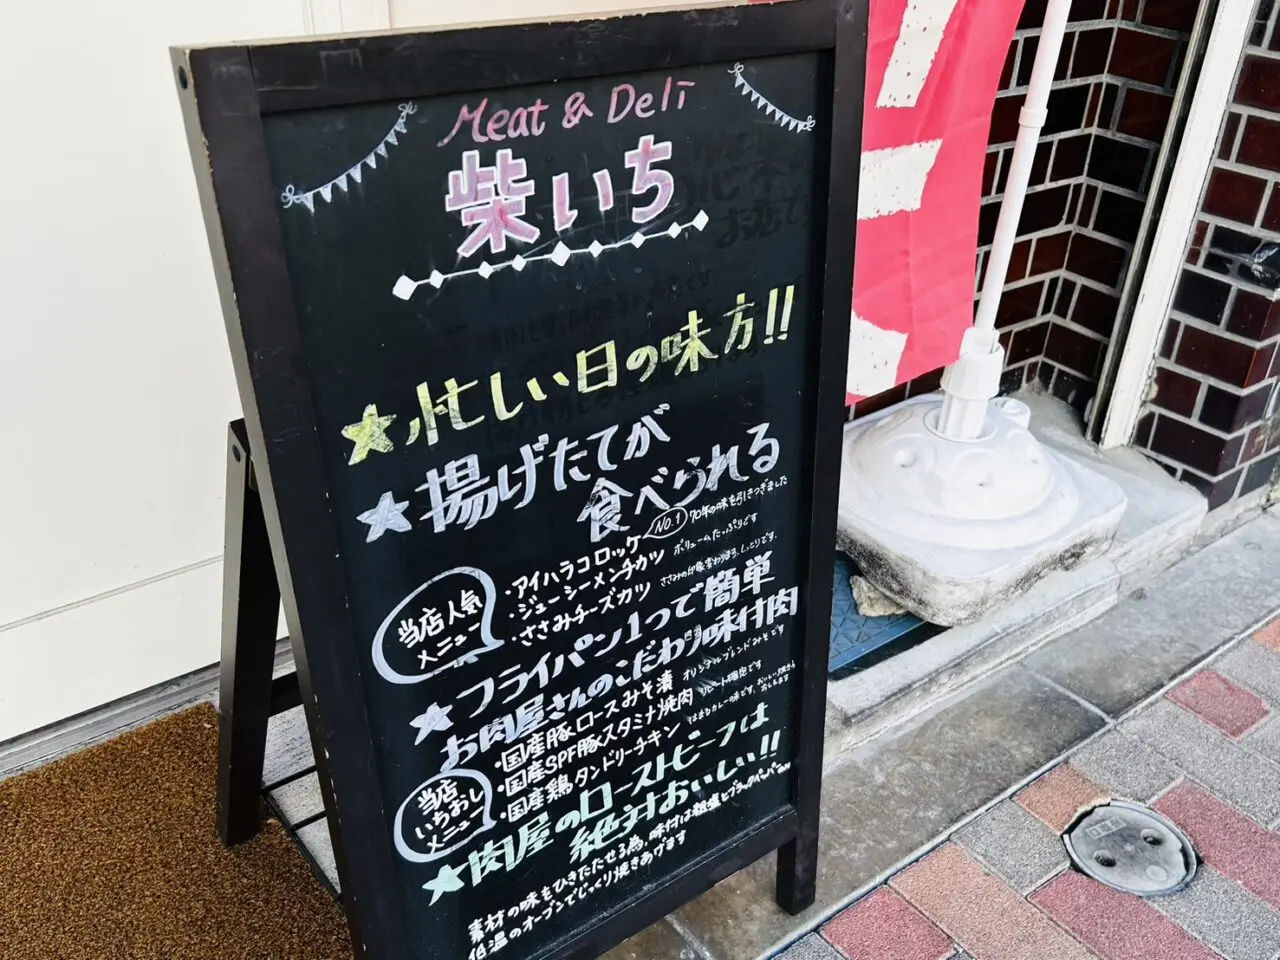 Meat & Deli
柴いち
★忙しい日の味方!!
★揚げたてが
食べられる
当店人気
メニュー
・アイハラコロッケ NO.1 70年の味を引きつぎました
・ジューシーメンチカツ ボリュームたっぷりです
・ささみチーズカツ ささみの印象変わります。しっとりです。
★フライパン1つで簡単
お肉屋さんのこだわり味付肉
当店
いちおし
メニュー
・国産豚ロースみそ漬 オリジナルブレンドみそです
・国産SPF豚スタミナ焼肉 リピート確定です
・国産鶏タンドリーチキン はまるカレーの味です。
★肉屋のローストビーフは
絶対おいしい!!
素材の味をひきたたせる為、味付は粗塩とブラックペッパーのみ
低温のオーブンでじっくり焼きあげます